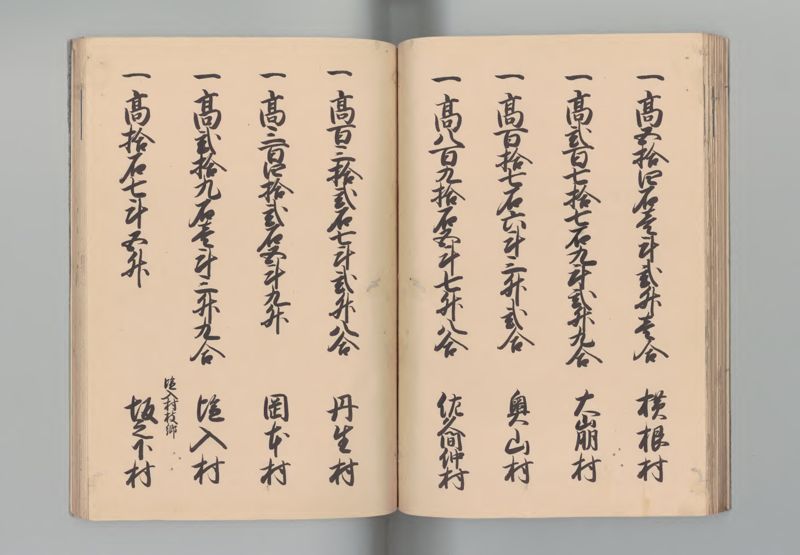 一高五拾四石壱斗弐升壱合 横根村
一高弐百七拾七石九斗弐升九合 大崩村
一高百拾七石六斗三升弐合 奥山村
一高八百九拾石五斗七升八合 佐久間中村
一高百三拾弐石七斗弐升八合 丹生村
一高三百四拾弐石五斗九升 岡本村
一高弐拾九石壱斗三升九合 塩入村
塩入村枝郷
一高拾石七斗五升 坂之下村